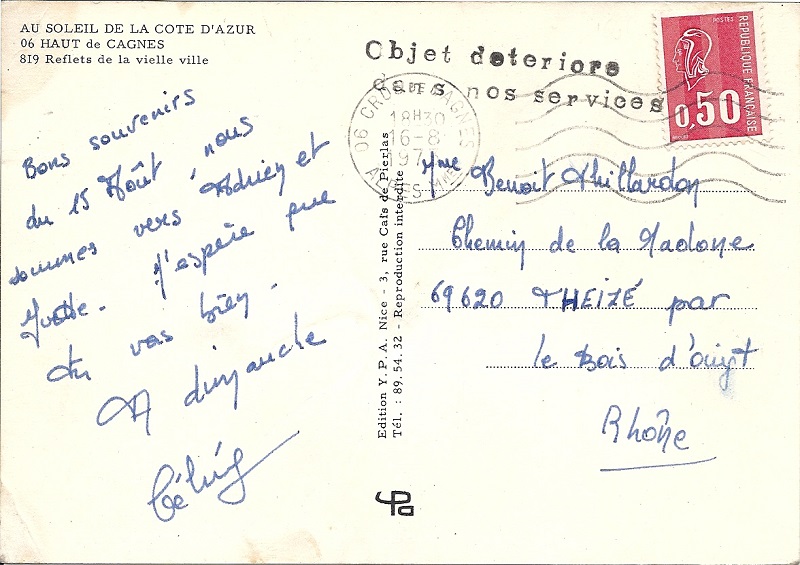 AU SOLEIL DE LA COTE D'AZUR
06 HAUT de CAGNES
819 Reflets de la vielle ville
Bons souvenirs
du 15 Août, nous
sommes vers Adrien et
Yvette. J'espère que
tu vas bien.
A dimanche
Objet deteriore
dans nos services
06 CROS DE CAGNES
18H30
16-8
197
ALPES MMES
POSTES
REPUBLIQUE FRANÇAISE
0,50
Edition Y. P. A. Nice - 3, rue Caïs de Pierlas
Tél. : 89.54.32 - Reproduction interdite
Mme Benoit Thillardon
Chemin de la Madone
69620 THEIZÉ par
le Bois d'Oingt
Rhône